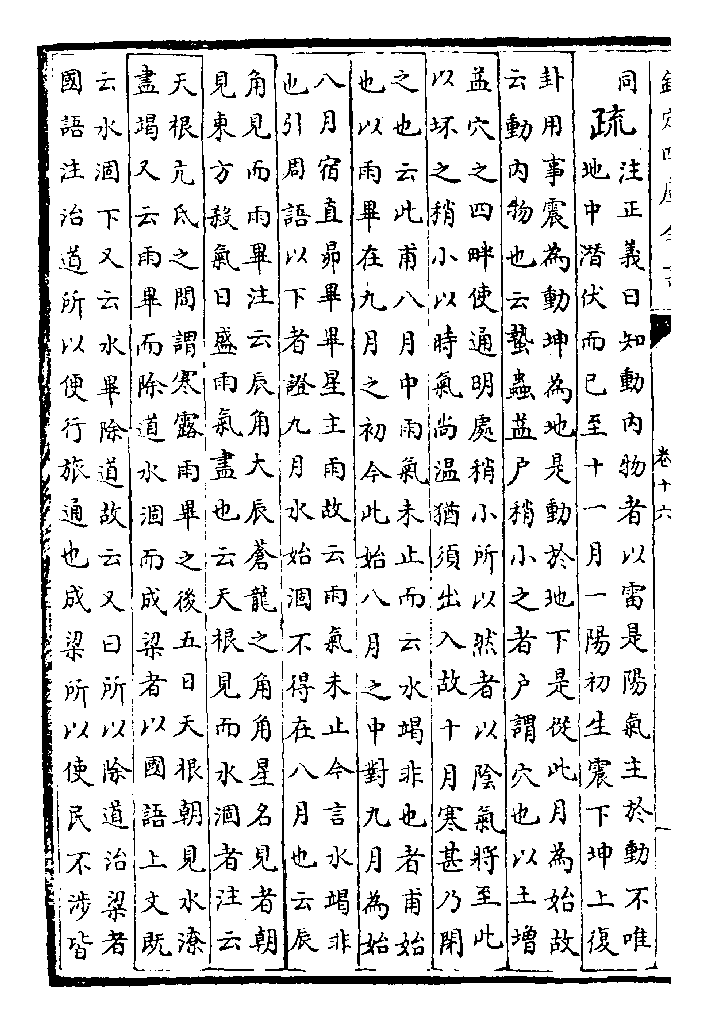 卷十六
同疏注正義曰知動内物者以雷是陽氣主於動不唯
地中潛伏而已至十一月一陽初生震下坤上復
卦用事震為動坤為地是動於地下是從此月為始故
云動内物也云蟄蟲益户稍小之者户謂穴也以土增
益穴之四畔使通明處稍小所以然者以陰氣將至此
以坏之稍小以時氣尚温猶須出入故十月寒甚乃閉
之也云此甫八月中雨氣未止而云水竭非也者甫始
也以雨畢在九月之初今此始八月之中對九月為始
八月宿直昴畢畢星主雨故云雨氣未止今言水竭非
也引周語以下者證九月水始涸不得在八月也云辰
角見而雨畢注云辰角大辰蒼龍之角角星名見者朝
見東方殺氣日盛雨氣盡也云天根見而水涸者注云
天根亢氐之間謂寒露雨畢之後五日天根朝見水潦
盡竭又云雨畢而除道水涸而成梁者以國語上文既
云水涸下又云水畢除道故云又曰所以除道治梁者
國語注治道所以便行旅通也成梁所以使民不涉皆